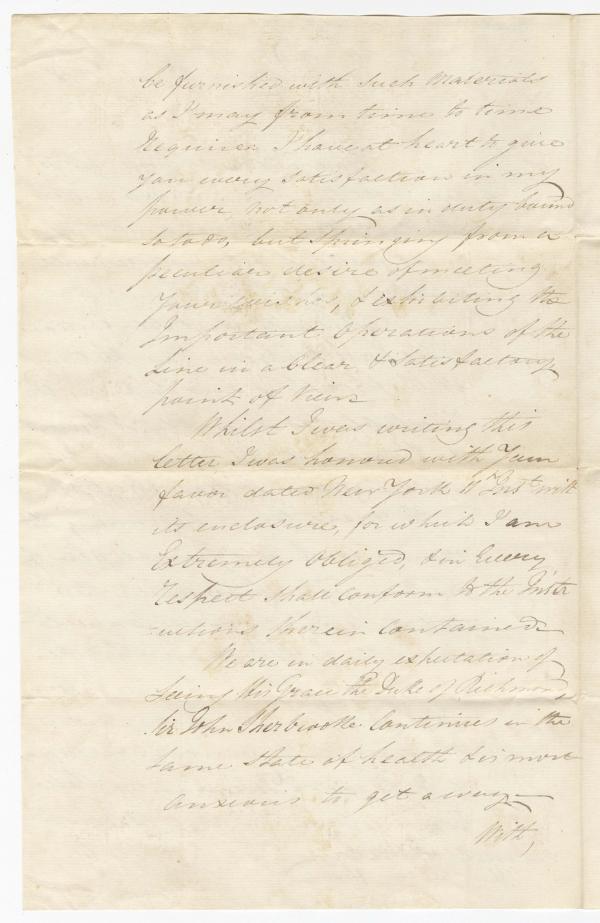 be furnished with such Materials
as I may from time to time
Require. I have at heart to give
you every satisfaction in my
power, not only as in duty bound
so to do, but springing from a
peculiar desire of meeting
Your wishes, & exhibiting the
Important Operations of the
Line in a Clear & Satisfactory
point of View
Whilst I was writing this
letter I was honored with Your
favor dated New York 11th Inst with
its enclosure, for which I am
Extremely Obliged, & in Every
Respect shall conform to the Instr
-uctions therein contained
We are in daily expectation of
Seeing His Grace the Duke of Richmond,
Sir John Sherbrooke Continues in the
same state of health & is most
anxious to get away—
With,